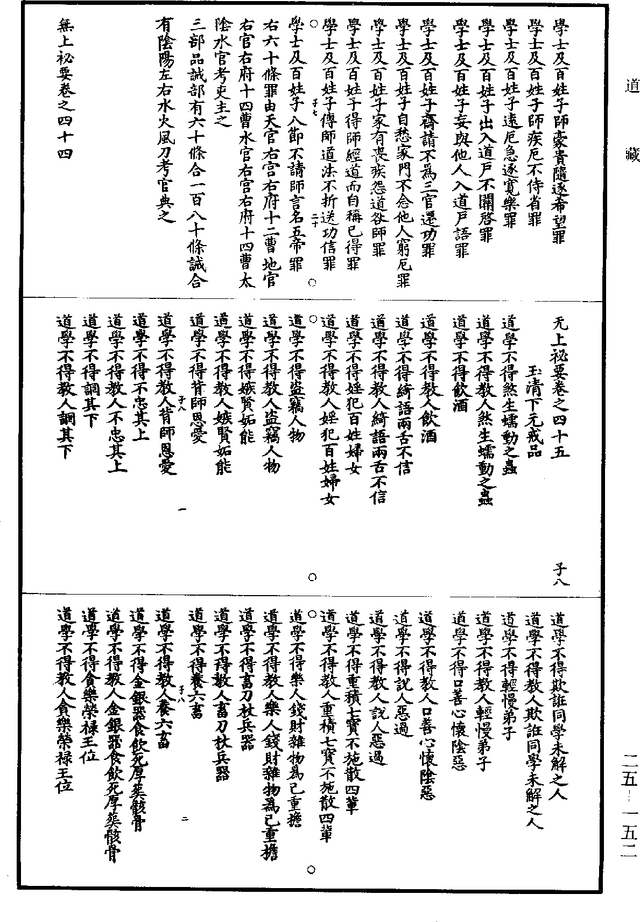 道藏
學士及百姓子師豪貴隨逐希望罪
學士及百姓子師疾厄不侍省罪
學士及百姓子遠厄急逐寬樂罪
學士及百姓子出入道戶不關啓罪
學士及百姓子妄與他人入道戶語罪
學士及百姓子齋請不爲三官還功罪
學士及百姓子自愁家門不念他人窮厄罪
學士及百姓子家有喪疾怨道咎師罪
學士及百姓子得師經道而自稱已得罪
學士及百姓子傳師道法不折送功信罪
子七
二十
學士及百姓子八節不請師言名五帝罪
右六十條罪由天官右官右府十二曹地官
右官右府十四曹水官右官右府十四曹太
陰水官考吏主之
三部品誡部有六十條合一百八十條誡合
有陰陽左右水火風刀考官典之
無上祕要卷之四十四
无上祕要卷之四十五
子八
玉清下元戒品
道學不得煞生蠕動之蟲
道學不得教人煞生蠕動之蟲
道學不得飲酒
道學不得教人飲酒
道學不得綺語兩舌不信
道學不得教人綺語兩舌不信
道學不得婬犯百姓婦女
道學不得教人婬犯百姓婦女
道學不得盜竊人物
道學不得教人盜竊人物
道學不得嫉賢妬能
道學不得教人嫉賢妬能
道學不得背師恩愛
子八
一
道學不得教人背師恩愛
道學不得不忠其上
道學不得教人不忠其上
道學不得調其下
道學不得教人調其下
道學不得欺誑同學未解之人
道學不得教人欺誑同學未解之人
道學不得輕慢弟子
道學不得教人輕慢弟子
道學不得口善心懷陰惡
道學不得教人口善心懷陰惡
道學不得說人惡過
道學不得教人說人惡過
道學不得重積七寶不施散四輩
道學不得教人重積七寶不施散四輩
道學不得樂人錢財雜物爲己重擔
道學不得教人樂人錢財雜物爲己重擔
道學不得畜刀杖兵器
道學不得教人畜刀杖兵器
道學不得養六畜
子八
二
道學不得教人養六畜
道學不得金銀器食飲死厚葬骸骨
道學不得教人金銀器食飲死厚葬骸骨
道學不得貪樂榮祿王位
道學不得教人貪樂榮祿王位
二五-一五二